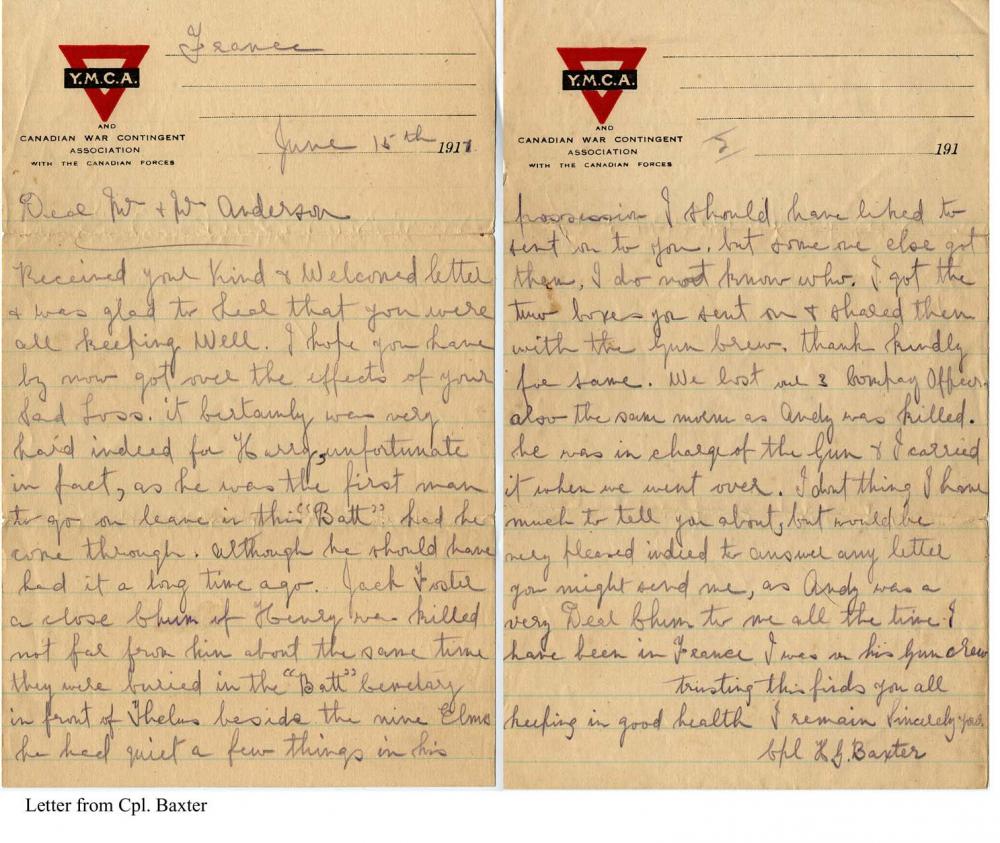 France
Y.M.C.A.
AND
CANADIAN WAR CONTINGENT
ASSOCIATION
WITH THE CANADIAN FORCES
June 15th 1917
Dear Mr + Mrs Anderson
Received your Kind & Welcomed letter
& was glad to hear that you were
all keeping Well. I hope you have
by now got over the effects of your
Sad Loss. it certainly was very
hard indeed for Harry, unfortunate
in fact, as he was the first man
to go on leave in this "Batt" had he
come through. although he should have
had it a long time ago. Jack Foster
a close Chum of Henry was killed
not far from him about the same time
they were buried in the "Batt" Cemetary
in front of Thelus beside the nine Elms
he had quiet a few things in his
Y.M.C.A.
AND
CANADIAN WAR CONTINGENT
ASSOCIATION
WITH THE CANADIAN FORCES
191
possession I should have liked to
sent on to you. but some one else got
them, I do not know who. I got the
two boxes you sent on & shared them
with the Gun Crew. thank kindly
for same. We lost our 3 Company Officers
also the same morn as Andy was killed.
he was in charge of the Gun & I carried
it when we went over. I dont thing I have
much to tell you about, but would be
very pleased indeed to answer any letter
you might send me, as Andy was a
very Dear Chum to me all the time I
have been in France I was on his Gun crew
trusting this finds you all
keeping in good health I remain Sincerely yours
Cpl H.G. Baxter
Letter from Cpl. Baxter